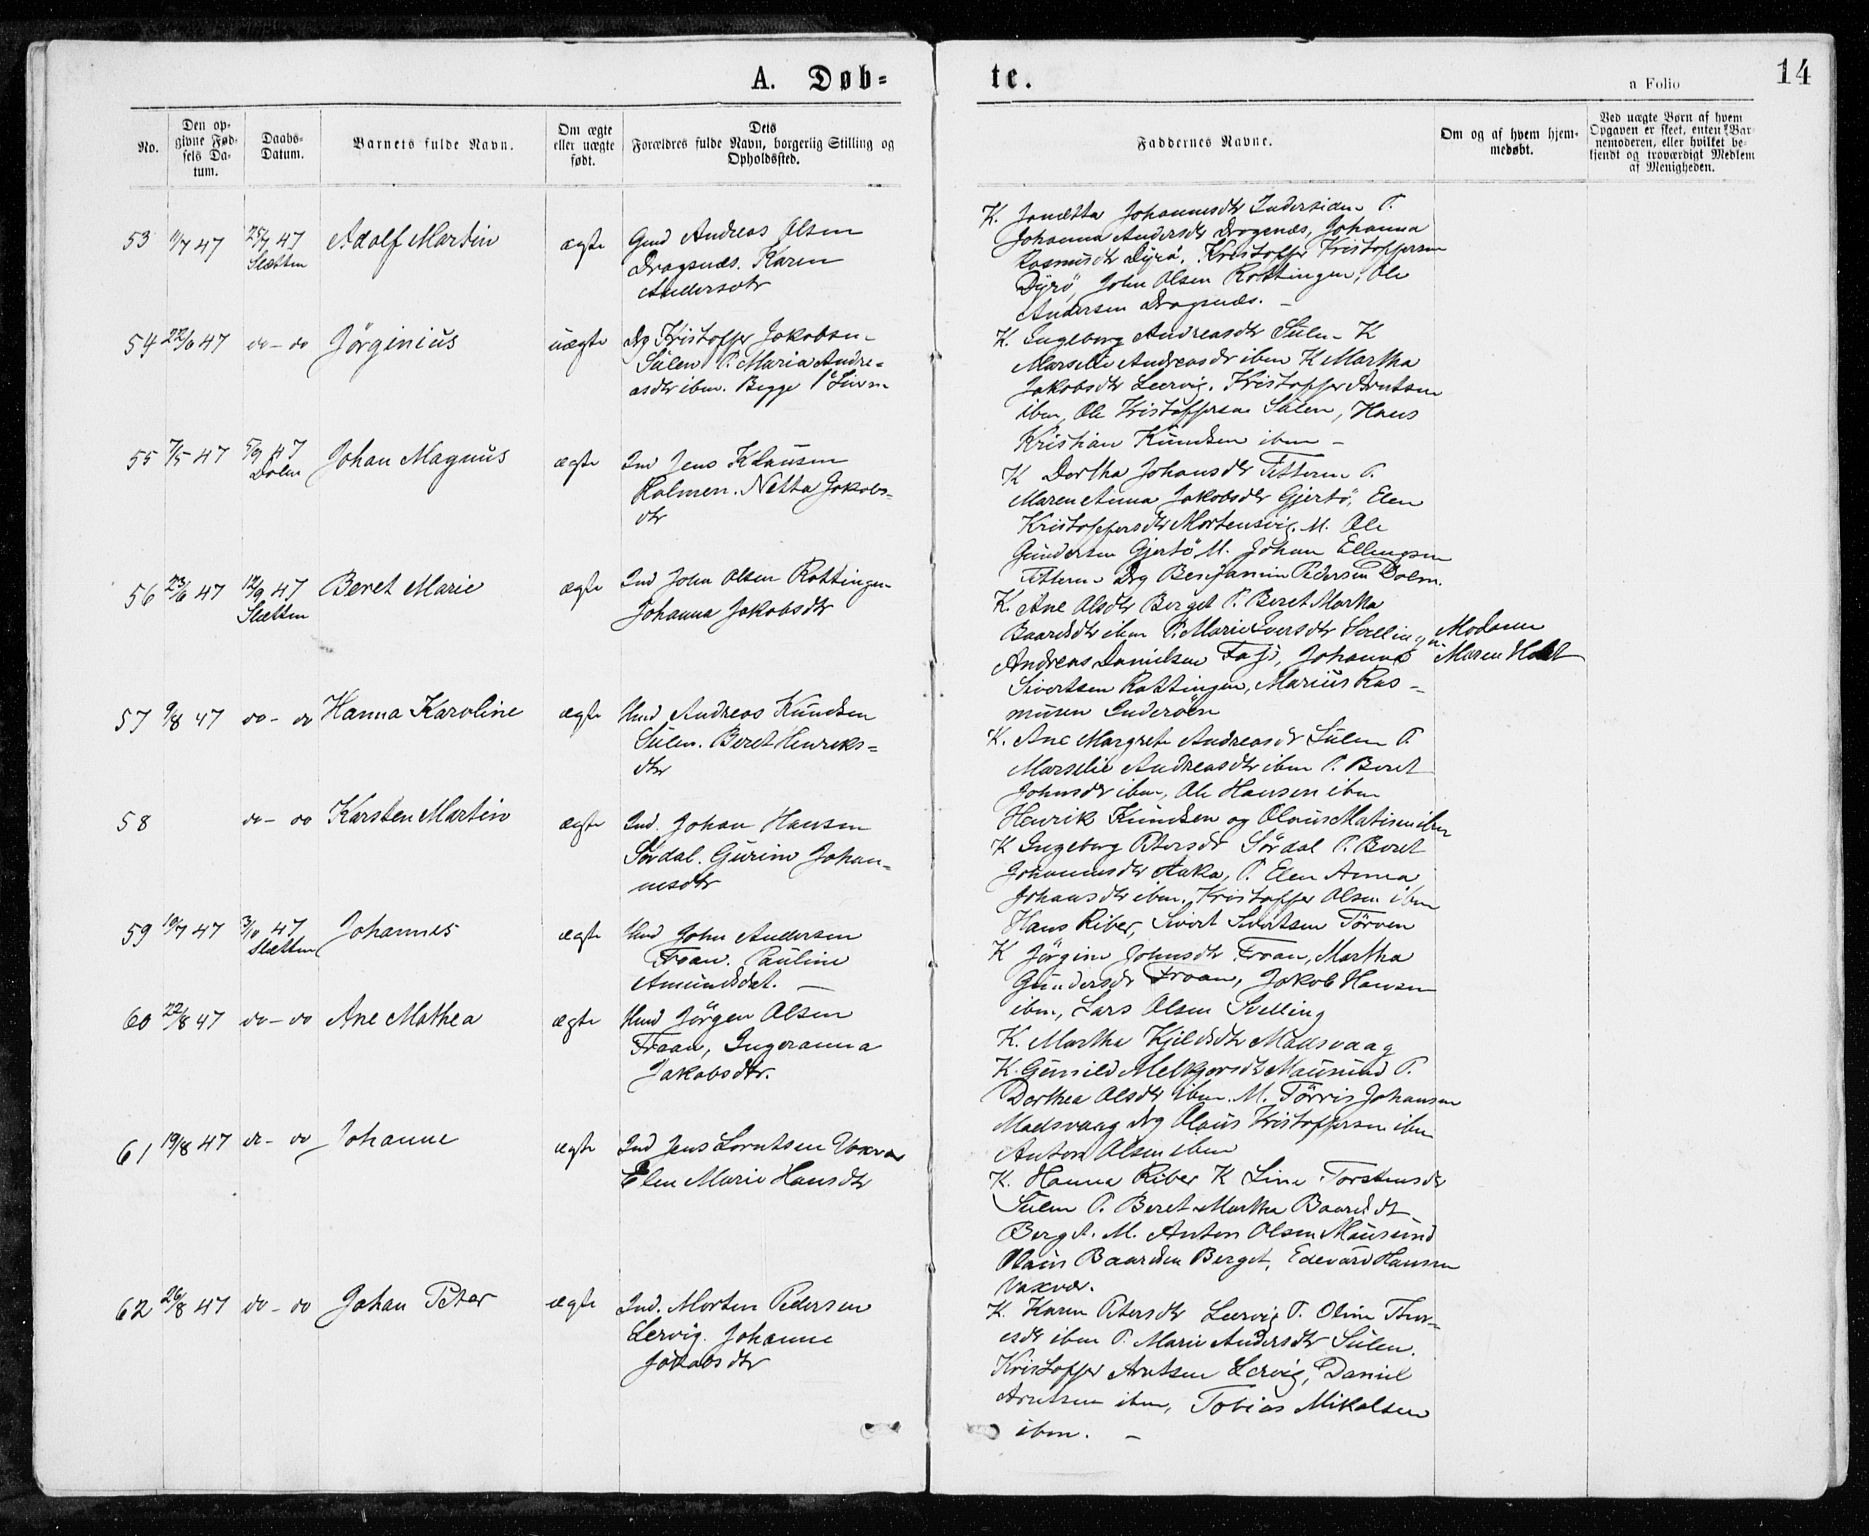 A. Døb=te.
a Folio 14
No.
Den op-
givne Fød-
sels Da-
tum.
Daabs-
Datum.
Barnets fulde Navn.
Om ægte
eller uægte
født.
Dets
Forældres fulde Navn, borgerlig Stilling og
Opholdssted.
Faddernes Navne.
Om og af hvem hjem-
medøbt.
Ved uægte Børn af hvem
Opgaven er skeet, enten Bar-
nemoderen, eller hvilket be-
kjendt og troværdigt Medlem
af Menigheden.
53 11/7 47 25/7 47 Adolf Martin ægte Gmd Andreas Olsen
Slætten Dragsnæs. Karen
Andersdtr
K. Johannesdtr Indersiden P.
Johanna Andersdtr Dragsnæs, Johanna
Rasmusdtr Dyrø. Kristoffer Kristoffersen
Dyrø, John Olsen Rottingen, Ole
Andersen Dragsnæs. -
54 47 do - do Jörginius uægte Drg Kristoffer Jakobsen
Sülen P. Maria Andre=
asdtr ibm. Begge
K. Ingeborg Andreasdtr Sülen K
Marselie Andreasdr ibm K Martha
Jakobsdtr Leervig. Kristoffer Arntsen
ibm, Ole Kristoffersen Sülen, Hans
Kristian Knudsen ibm -
55 7/5 47 5/9 47 Johan Magnus ægte Ind Jens Klausen
Dolm Holmen. Netta Jakobs-
dtr
K Dortha Johansdtr Tetteren P.
Maren Anna Jakobsdtr Gjertø, Elen
Kristoffersdtr Mortensvig. M. Ole
Gundersen Gjertø M. Johan Ellingsen
Drg Benjamin Pedersen Dolm.
56 23/6 47 12/9 47 Beret Marie ægte Ind John Olsen Rottingen
Slætten Johanna Jakobsdtr
K. Ane Olsdtr Berget P. Beret Martha
Baardsdtr ibm P. Marie
Andreas Danielsen Johannes
Sivertsen Rottingen, Marius Ras-
musen Inderøen
Madame
Maren Holt
57 9/8 47 do - do Hanna Karoline ægte Hmd Andreas Knudsen
Sülen. Beret Henriks=
dtr
K. Ane Margrete Andreasdr Sülen P.
Marselie Andreasdtr ibm P. Beret
Johnsdtr ibm, Ole Hansen ibm
Henrik Knudsen og Olaus Matisen ibm
58 do - do Karsten Martin ægte Ind. Johan Hansen
Sørdal. Gurine Johan=
nesdtr
K Ingeborg Petersdr Sördal P. Beret
Johannesdtr P. Elen Anna
Johansdtr ibm. Kristoffer Olsen ibm
Hans Riber, Sivert Sivertsen
59 19/7 47 3/10 47 Johannes ægte Hmd John Andersen
Slætten Froan. Pauline
Amundsdat. -
K Jörgine Johnsdtr Froan, Martha
Gundersdr Froan, Jakob Hansen
ibm, Lars Olsen Svelling
60 22/8 47 do - do Ane Mathea ægte Hmd Jörgen Olsen
Froan, Ingeranna
Jakobsdtr.
K. Martha Kjeldsdtr Madsvaag
K. Gunild Melkjorsdtr Mausund P.
Dorthea Olsdtr ibm. M. Törris Johansen
Madsvaag drg Olaus Kristoffersen ibm
Anton Olsen ibm
61 19/8 47 do - do Johanne ægte Ind Jens Lorntsen Vaxvær
Elen Marie Hansdtr
K. Hanna Riber K Line Torstensdr
Sülen P. Beret Martha Baardsdt
Berget. M. Anton Olsen Mausund
Olaus Baardsen Berget, Edevard Hansen
Vaxvær.
62 26/8 47 do - do Johan Peter ægte Ind. Morten Pedersen
Lervig. Johanne
Jakobsdtr
K. Karen Petersdtr Leervig P. Oline
ibm P. Marie Andersdtr Sülen.
Kristoffer Arntsen Lervig, Daniel
Arntsen ibm, Tobias Mikalsen
ibm. -